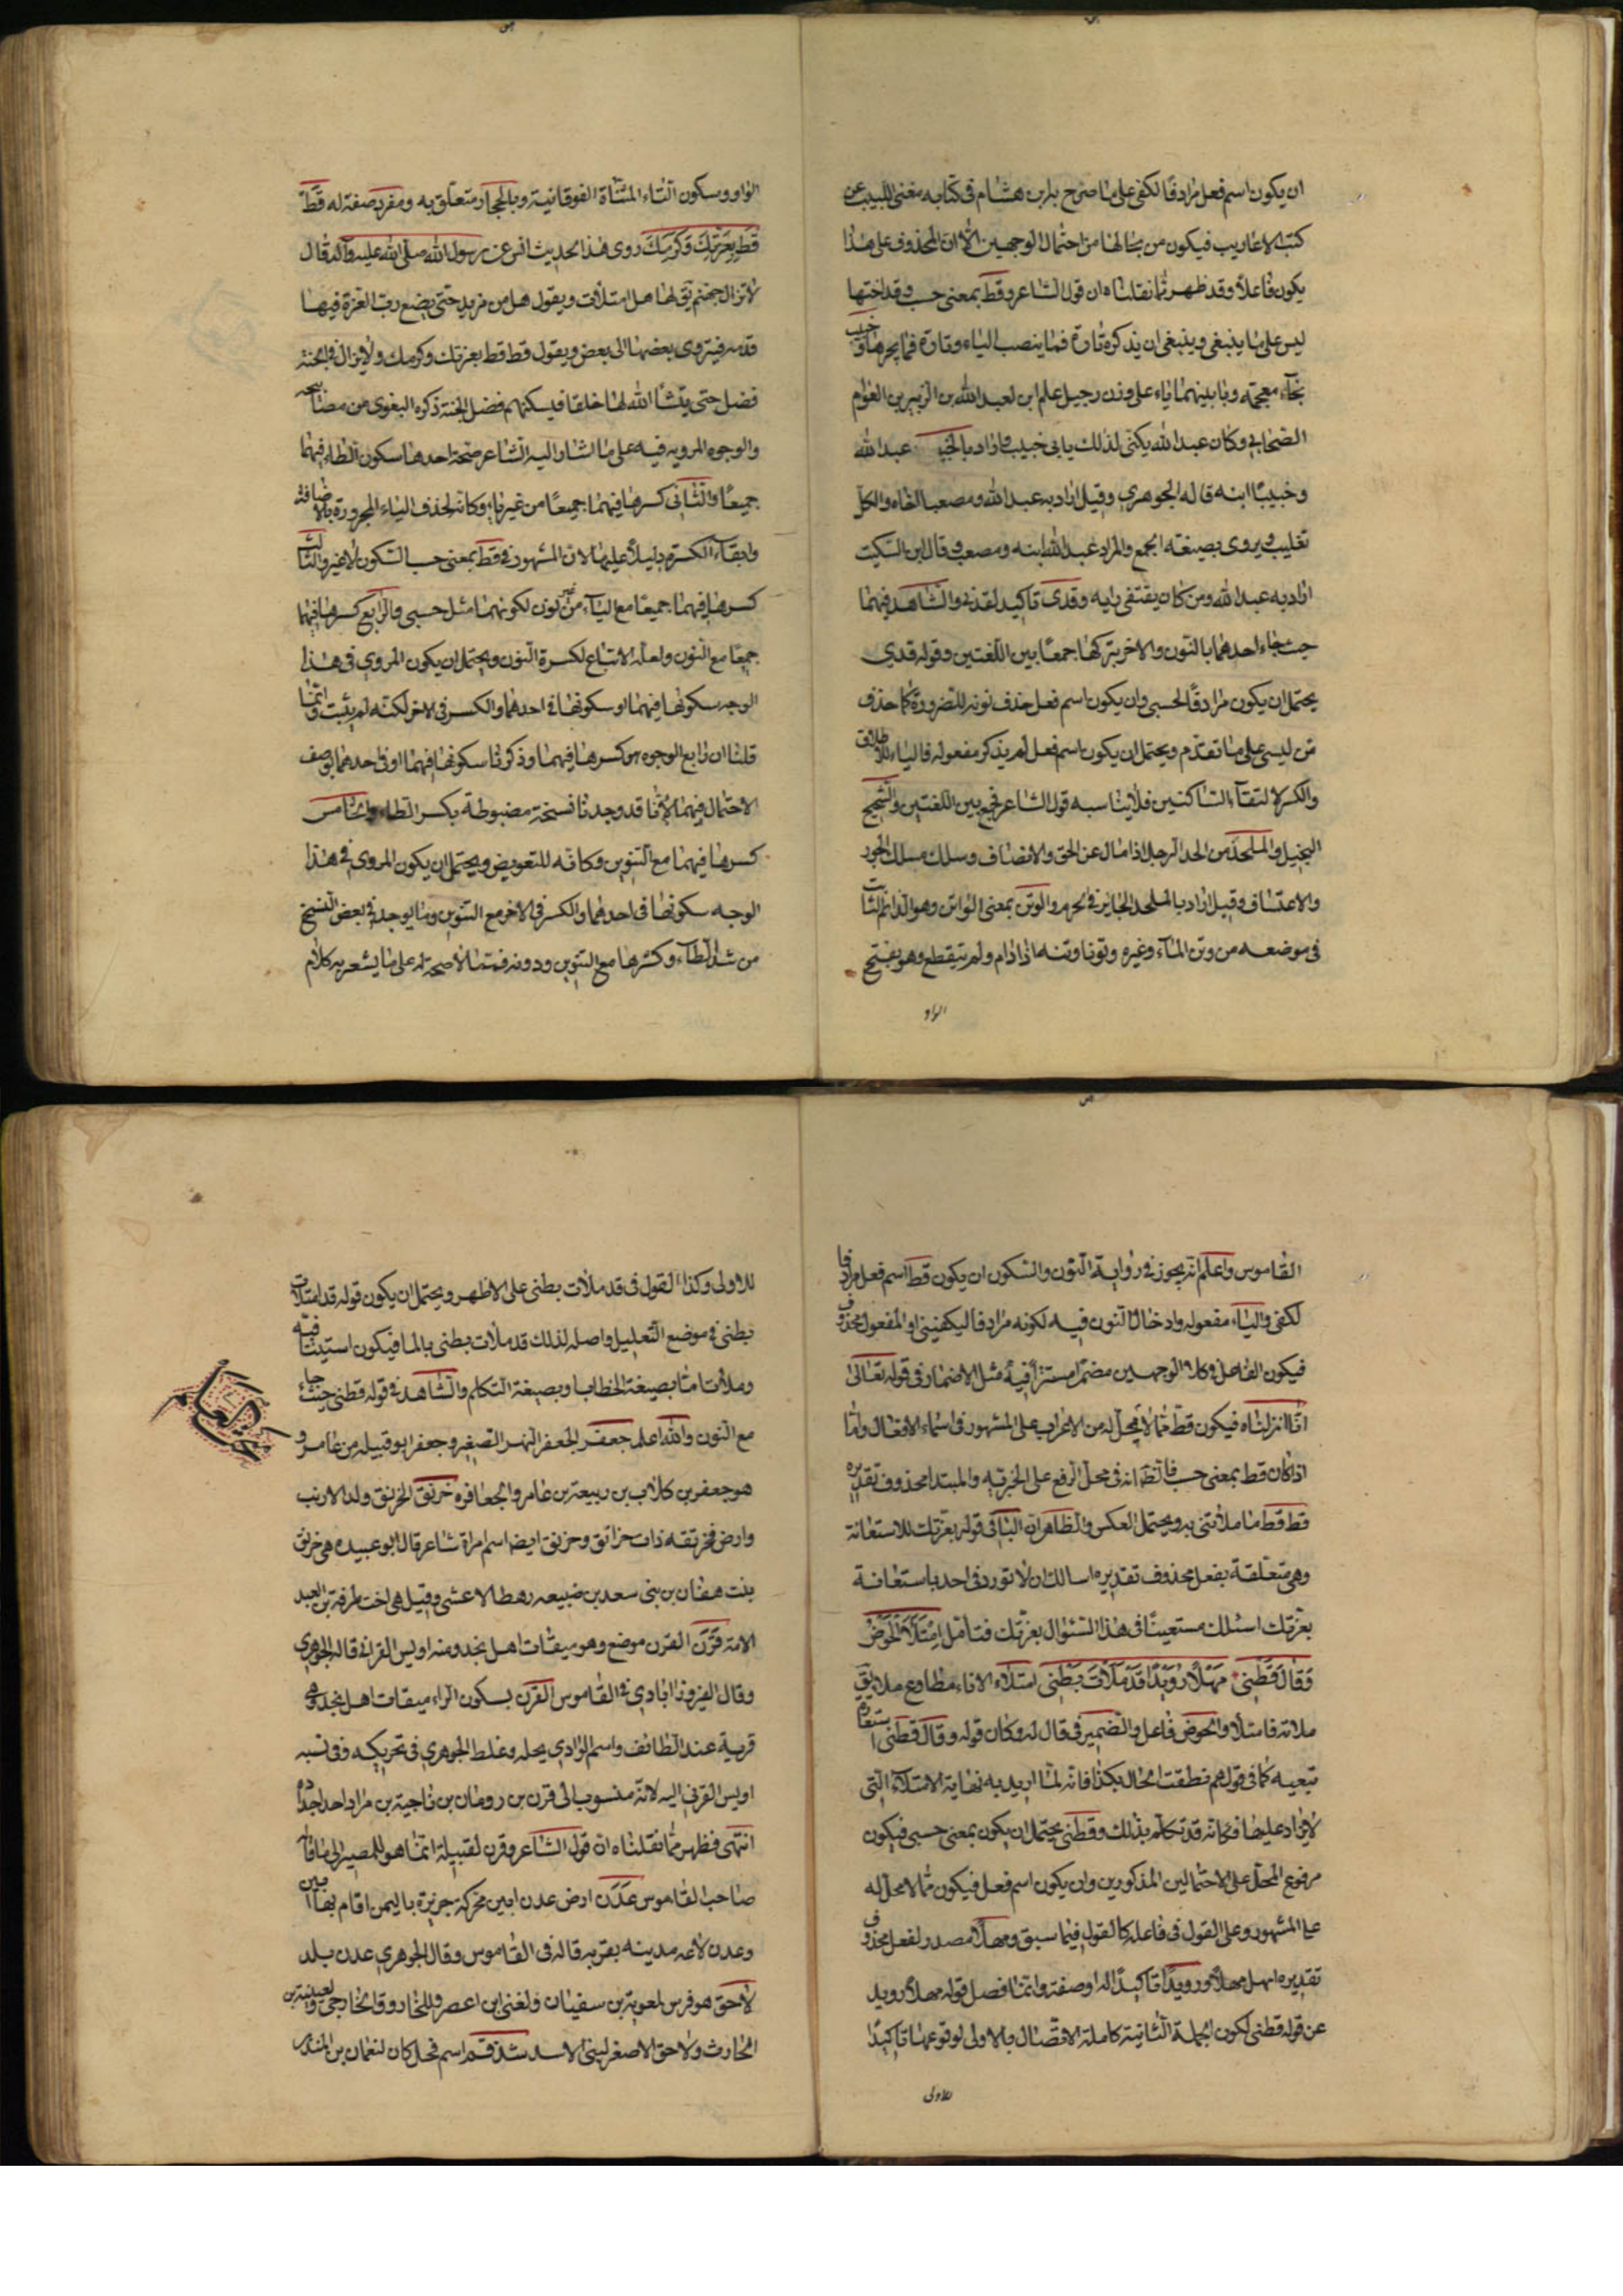 ان يكون اسم فعل مرادفا لكفى على ما صرح به ابن هشام فى كتابه مغنى اللبيب عن
كتب الاعاريب فيكون من بجا لها من احتمال الوجهين الا ان المحذوف على هذا
يكون فاعلا وقد ظهر مما نقلناه ان قول الشاعر وقط بمعنى حسب وقد اختها
ليس على ما ينبغى وينبغى ان يذكره تارة فما ينصب الياء وتارة فما يجرها وخبيب
بخاء معجمة وبائين بينهما ياء على وزن رجيل علم ابن لعبد الله بن الزبير بن العوام
الصحابى وكان عبد الله يكنى لذلك بابى خبيب واراد بالخبيبين عبد الله
وخبيبا ابنه قاله الجوهرى وقيل اراد به عبد الله ومصعبا اخاه والكل
تغليب ويروى بصيغة الجمع والمراد عبد الله ابنه ومصعب وقال ابن السكيت
اراد به عبد الله ومن كان يقتفى رايه وقدى تاكيد لقدنى والشاهد فيهما
حيث جاء احدهما بالنون والاخر بتركها جمعا بين اللغتين وقوله قدى
يحتمل ان يكون مرادفا لحسبى وان يكون اسم فعل حذف نونه للضرورة كما حذف
من ليسى على ما تقدم ويحتمل ان يكون اسم فعل لم يذكر مفعوله فالياء للاطلاق
والكسر لالتقاء الساكنين فلا يناسبه قول الشاعر فجمع بين اللغتين والشحيح
البخيل والملحد من الحد الرجل اذا مال عن الحق والانصاف وسلك مسلك الجور
والاعتساف وقيل اراد بالملحد الجاير فى الحرم والوتن بمعنى الواتن وهو الدائم الثابت
فى موضعه من وتن الماء وغيره وتونا وتنه اذا دام ولم ينقطع وهو بفتح
الواو
الواو وسكون التاء المثناة الفوقانية وبالحجاز متعلق به ومفرد صفة له قط
قط بعزتك وكرمك روى هذا الحديث انس عن رسول الله صلى الله عليه وآله قال
لا تزال جهنم يق لها هل امتلات ويقول هل من مزيد حتى يضع رب العزة فيها
قدمه فيزوى بعضها الى بعض ويقول قط قط بعزتك وكرمك ولا يزال فى الجنة
فضل حتى ينشأ الله لها خلقا فيسكنهم فضل الجنة ذكره البغوى من مصابيحه
والوجوه المروية فيه على ما اشار اليه الشاعر صحة احدها سكون الطاء فيهما
جميعا والثانى كسرها فيهما جميعا من غير ياء وكانه لحذف الياء المجرورة بالاضافة
وابقاء الكسرة دليلا عليها لان المشهور فى قط بمعنى حسب السكون لا غير والثالث
كسرها فيهما جميعا مع الياء من نون لكونهما مثل حسبى والرابع كسرها فيهما
جميعا مع النون ولعله الاتباع لكسرة النون ويحتمل ان يكون المروى فى هذا
الوجه سكونها فيهما او سكونها فى احدهما والكسر فى الاخر لكنه لم يثبت وانما
قلنا ان رابع الوجوه هو كسرها فيهما وذكرنا سكونها فيهما او فى احدهما بوصف
الاحتمال فيهما لانا قد وجدنا نسخة مضبوطة بكسر الطاء والخامس
كسرها فيهما مع التنوين وكانه للتعويض ويحتمل ان يكون المروى فى هذا
الوجه سكونها فى احدهما والكسر فى الاخر مع التنوين وما يوجد فى بعض النسخ
من شد الطاء وكسرها مع التنوين ودونه فمما لا صحة له على ما يشعر به كلام
القاموس واعلم انه يجوز فى رواية النون والسكون ان يكون قط اسم فعل مرادفا
لكفى والياء مفعوله وادخال النون فيه لكونه مرادفا ليكفينى او المفعول محذوف
فيكون الفاعل فى كلا الوجهين مضمرا مستترا فيه مثل الاضمار فى قوله تعالى
انا انزلناه فيكون قط مما لا محل له من الاعراب على المشهور فى اسماء الافعال واما
اذا كان قط بمعنى حسب فالظ انه فى محل الرفع على الخبرية والمبتدا محذوف تقديره
قط قط ما ملأتنى به ويحتمل العكس والظاهر ان الباء فى قوله بعزتك للاستعانة
وهى متعلقة بفعل محذوف تقديره اسالك ان لا تورد فى احد باستعانة
بعزتك اسئلك مستعينا فى هذا السئوال بعزتك فتأمل امتلأ الحوض
وقال قطنى مهلا رويدا قد ملأت بطنى امتلاء الاناء مطاوع ملا يق
ملاته فامتلأ والحوض فاعل والضمير فى قال له وكان قوله وقال قطنى استعارة
تبعية كما فى قولهم نطقت الحال بكذا فانه لما اريد به نهاية الامتلاء التى
لا يزاد عليها فكانه قد تكلم بذلك وقطنى يحتمل ان يكون بمعنى حسبى فيكون
مرفوع المحل على الاحتمالين المذكورين وان يكون اسم فعل فيكون مما لا محل له
على المشهور وعلى القول فى فاعله كالقول فيما سبق ومهلا مصدر لفعل محذوف
تقديره امهل مهلا ورويدا تاكيدا له او صفته وانما فصل قوله مهلا رويد
عن قوله قطنى لكون الجملة الثانية كاملة الاتصال بالاولى لوقوعها تاكيدا
للاولى
للاولى وكذا القول فى قد ملأت بطنى على الاظهر ويحتمل ان يكون قوله قد امتلأت
بطنى فى موضع التعليل واصله لذلك قد ملأت بطنى بالما فيكون استينافية
وملأت اما بصيغة الخطاب او بصيغة التكلم والشاهد فى قوله قطنى حيث جاء
مع النون والله اعلم جعفر الجعفر النهر الصغير وجعفر ابو قبيلة من عامر و
هو جعفر بن كلاب بن ربيعة بن عامر والجعافره خرنق الخرنق ولد الارنب
وارض مخرنقه ذات خرانق وخرنق ايضا اسم امراة شاعر قال ابو عبيده هى خرنق
بنت هفان بن بنى سعد بن ضبيعه رهط الاعشى وقيل هى اخت طرفة بن العبد
الامة قرن القرن موضع وهو ميقات اهل نجد ومنه اويس القرانى قاله الجوهرى
وقال الفيروزابادى فى القاموس القرن بسكون الراء ميقات اهل نجد وهى
قرية عند الطائف واسم الوادى يحله وغلط الجوهرى فى تحريكه وفى نسبه
اويس القرنى اليه لانه منسوب الى قرن بن رومان بن ناجية بن مراد احد اجداده
انتهى فظهر مما نقلناه ان قول الشاعر وقرن لقبيلة انما هو للمصير الى ما قاله
صاحب القاموس عدن ارض عدن ابين محركة جزيرة باليمن اقام بها ابين
وعدن لاعه مدينه بقربه قاله فى القاموس وقال الجوهرى عدن بلد
لاحق هو فرس لمعوية بن سفيان ولغنى ابن اعصر وللحازوق الخارجى ولعيينة بن
الحارث ولاحق الاصغر لبنى الاسد شدقم اسم فحل كان لنعمان بن المنذر